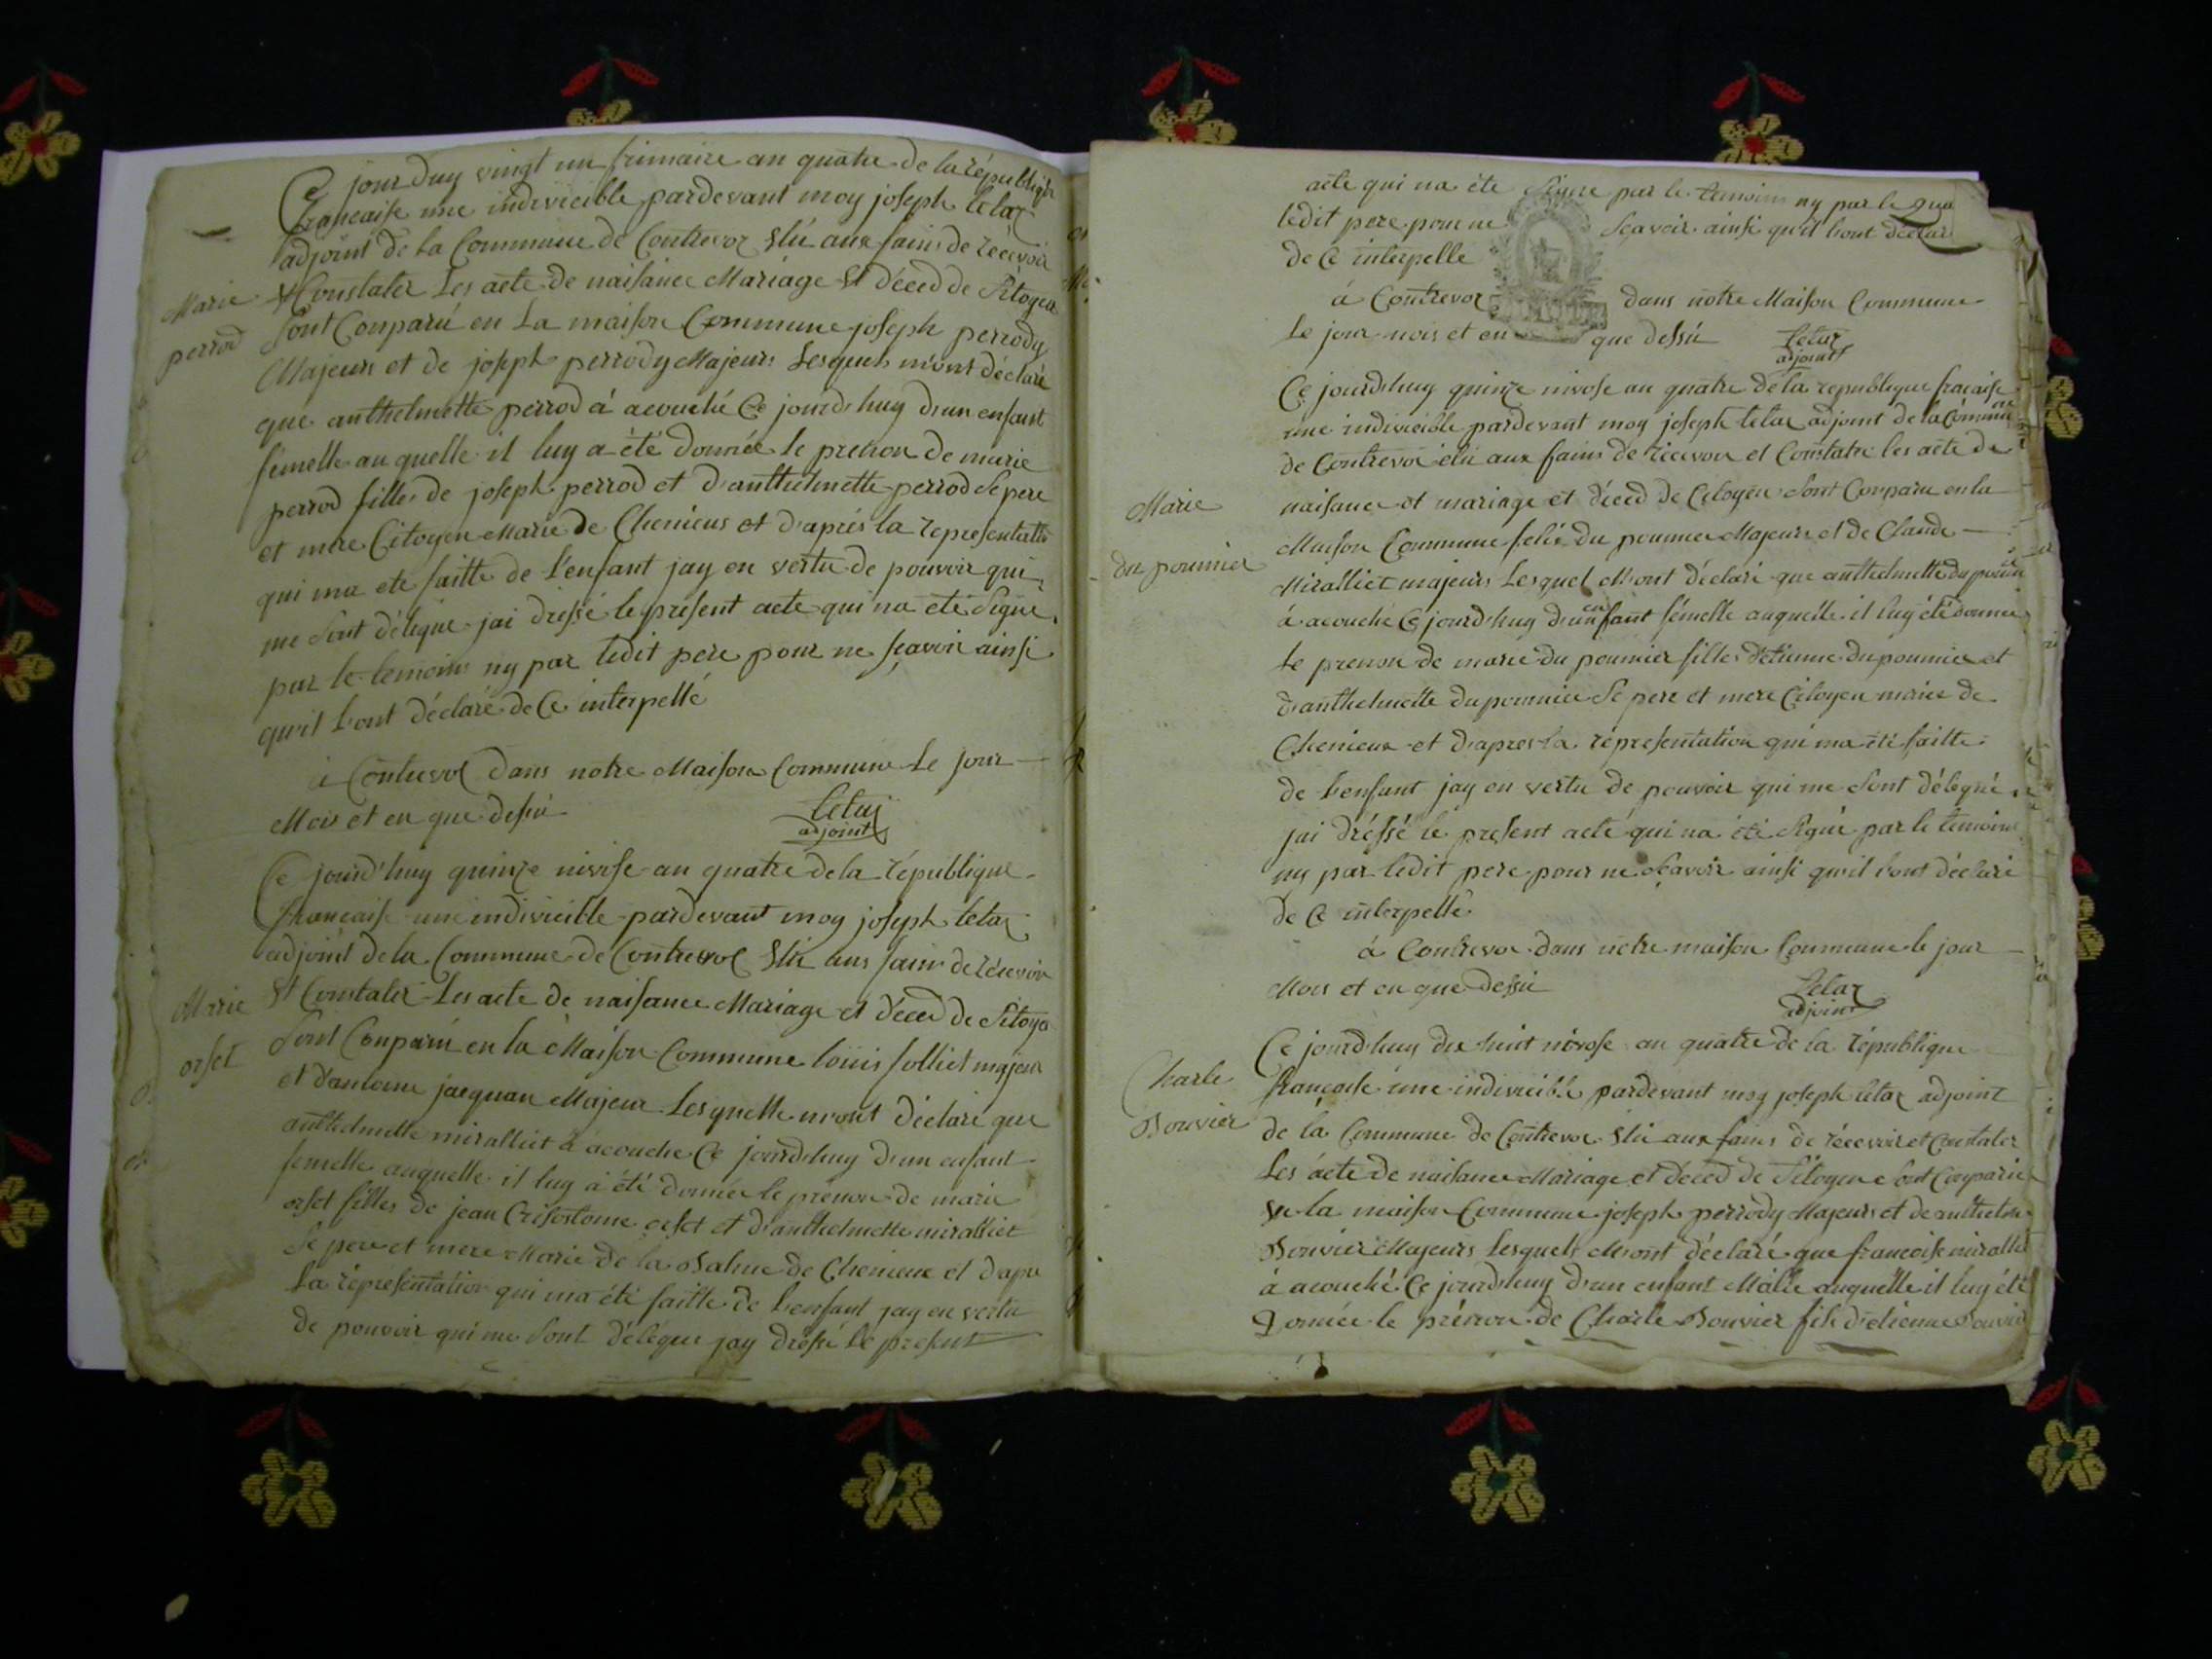 Ce jourduy vingt un frimaire an quatre de la républiqu
francaise une indivicible pardevant moy joseph letaz
adjoint de la Commune de Contrevoz élu aux fains de recevoir
et Constater Les acte de naisance Mariage et déced de Sitoyen
Marie
perrod
Sont Conparu en La maison Commune joseph perrody
Majeurs et de joseph perrody Majeurs Lesquels mont déclaré
que anthelmette perrod à acouché Ce jourdhuy dun enfant
fémelle au quelle il luy a été donnée le prenon de marie
perrod filles de joseph perrod et danthelmette perrod Se pere
et mere Citoyen Marie de Chenieus et d'aprés la representatio
qui ma ete faitte de L'enfant jay en vertu de pouvoir qui
me Sont délegué jai dressé le present acte qui na été Signé
par le temoins ny par ledit pere pour ne sçavoir ainsi
quil Lont déclaré de Ce interpellé
à Contrevoz dans notre Maison Commune Le jour
Mois et en que desu
Letaz
adjoint
Ce jourd'huy quinze nivose an quatre de la république
francaise une indivicible pardevant moy joseph letaz
adjoint de la Commune de Contrevoz élu aus fains de récevoir
et Constater Les acte de naisance Mariage et déced de Sitoye
Marie
orset
Sont Conparu en la Maison Commune louis folliet majeur
et d'antoine jacquan Majeur Lesquelle mont déclaré que
anthelmette miralliet à acouche Ce jourdhuy dun enfant
femelle auquelle il luy à été donnée le prénon de marie
orset filles de jean Crisostome orset et danthelmette miralliet
Se pere et mere Marie de la Balme de Chenieux et dapre
La répresentation qui ma été faitte de Lenfant jay en vertu
de pouvoir qui me Sont délégue jay dressé Le present
acte qui na éte Signe par le temoins ny par le
ledit pere pour ne Sçavoir ainsi quil Lont déclar
de Ce interpelle
à Contrevoz dans notre Maison Commune
Le jour mois et en que dessu
Letaz
adjoint
Ce jourdhuy quinze nivose an quatre de la republique fracaise
une indivicible pardevant moy joseph letaz adjoint de la Commune
de Contrevoz élu aux fains de récevoir et Constatre les acte de
naisance et mariage et déced de Citoyen Sont Conparu en la
Marie
du poumier
Maison Commune felix du poumier Majeurs et de Claude
Miralliet majeurs Lesquel Mont déclaré que anthelmette du poumie
à acouché Ce jourdhuy dun enfant fémelle auquelle il luy été donnée
Le prenon de marie du poumier filles détienne du poumier et
danthelmette du poumier Se pere et mere Citoyen marie de
Chenieux et dapres la répresentation qui ma été faitte
de Lenfant jay en vertu de pouvoir qui me Sont délegué
jai dréssé le present acte qui na été Signé par le temoins
ny par ledit pere pour ne Sçavoir ainsi quil Lont déclaré
de Ce interpellé
à Contrevoz dans notre maison Commune le jour
Mois et en que dessu
Letaz
adjoint
Ce jourdhuy dix huit nivose an quatre de la république
Charle
Bouvier
francaise une indivicible pardevant moy joseph letaz adjoint
de la Commune de Contrevoz élu aux fains de récevoir et Constater
Les acte de naisance Mariage et déced de Sitoyen Sont Conparu
en la maison Commune joseph perrody Majeurs et de anthelme
Bouvier Majeurs Lesquels Mont déclaré que francoise mirallie
à acouché Ce jourdhuy dun enfant Mâlle auquelle il luy été
donnée le prénon de Charle Bouvier fils détienne Bouvier